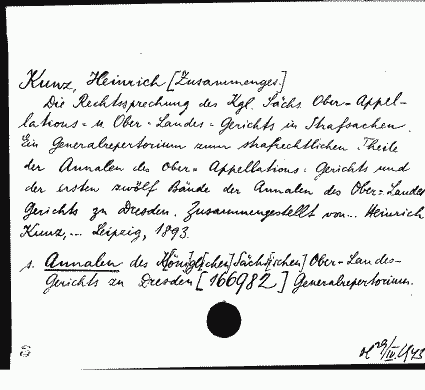 Kunz, Heinrich [Zusammenges.]
Die Rechtssprechung des Kgl. Sächs. Ober-Appel-
lations- u. Ober-Landes-Gerichts in Strafsachen.
Ein Generalrepertorium zum strafrechtlichen Theile
der Annalen des Ober-Appellations-Gerichts und
der ersten zwölf Bände der Annalen des Ober-Landes
Gerichts zu Dresden. Zusammengestellt von... Heinrich
Kunz,... Leipzig, 1893.
s. Annalen des K[öni]gl[ichen] Sächs[ischen] Ober-Landes-
Gerichts zu Dresden [166982] Generalrepertorium.